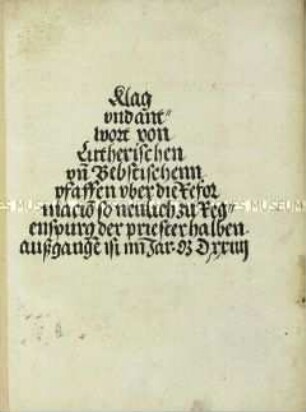 Klag
vnd ant⸗
wort von
Lutherischen
vñ Bebstischenn
pfaffen vber die Refor
maciõ so neulich zu Reg⸗
enspurg der priester halben
außgangẽ ist im Jar ·M D xxiiij